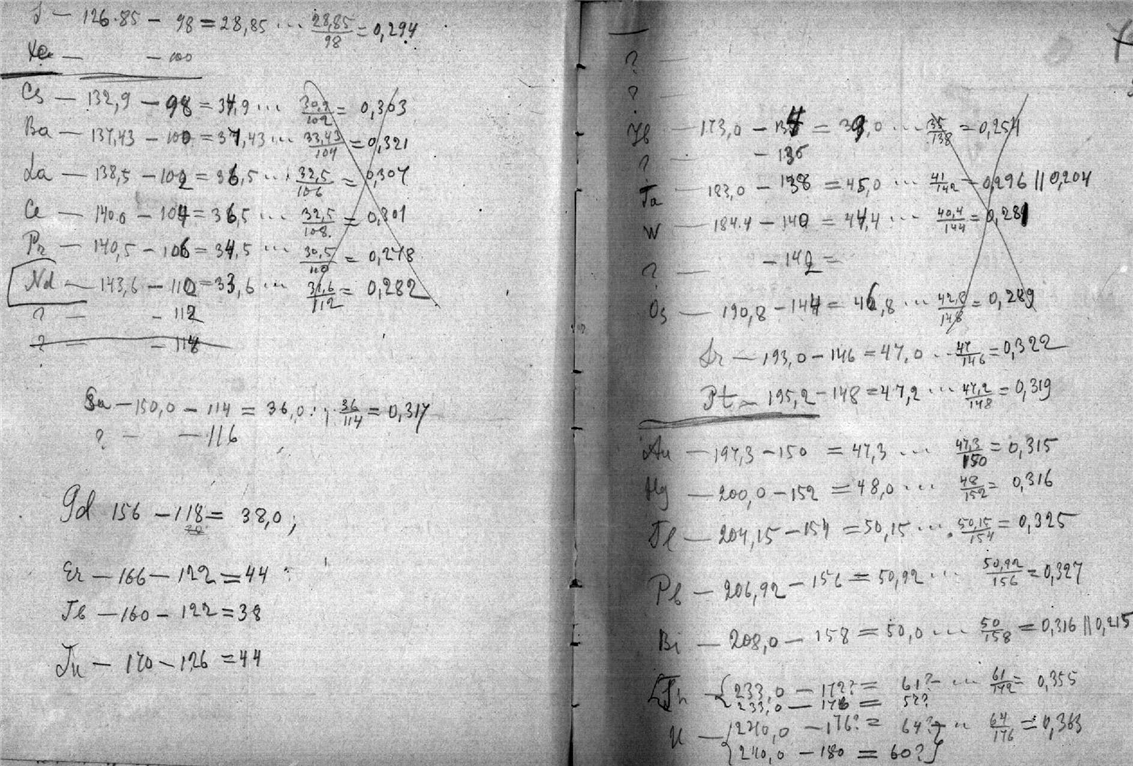 J – 126.85 – 98 = 28,85 ... 28,85/98 = 0,294
Xe – – 100
Cs – 132,9 – 98 = 34,9 ... 30,9/102 = 0,303
Ba – 137,43 – 100 = 37,43 ... 33,43/104 = 0,321
La – 138,5 – 102 = 36,5 ... 32,5/106 = 0,307
Ce – 140.0 – 104 = 36,5 ... 32,5/108 = 0,301
Pr – 140,5 – 106 = 34,5 ... 30,5/110 = 0,278
Nd – 143,6 – 110 = 33,6 ... 31,6/112 = 0,282
? – – 112
? – – 118
Sa – 150,0 – 114 = 36,0 ; 36/114 = 0,317
? – – 116
Gd 156 – 118 = 38,0 ;
Er – 166 – 122 = 44
Tb – 160 – 122 = 38
Tu – 170 – 126 = 44
?
?
Yb – 173,0 – 134 = 39,0 ... 35/138 = 0,254
? – – 136
Ta – 183,0 – 138 = 45,0 ... 41/142 = 0,296 || 0,204
W – 184.4 – 140 = 44,4 ... 40,4/144 = 0,281
? – – 142 =
Os – 190,8 – 144 = 46,8 ... 42,8/148 = 0,289
Ir – 193,0 – 146 = 47,0 ... 47/146 = 0,322
Pt – 195,2 – 148 = 47,2 ... 47,2/148 = 0,319
Au – 197,3 – 150 = 47,3 ... 47,3/150 = 0,315
Hg – 200,0 – 152 = 48,0 ... 48/152 = 0,316
Tl – 204,15 – 154 = 50,15 ... 50,15/154 = 0,325
Pb – 206,92 – 156 = 50,92 ... 50,92/156 = 0,327
Bi – 208,0 – 158 = 50,0 ... 50/158 = 0,316 || 0,215
Th – {233,0 – 172? = 61? ... 61/172 = 0,355
233,0 – 176 = 57?
U – {240,0 – 176? = 64? } " 64/176 = 0,363
{240,0 – 180 = 60?}